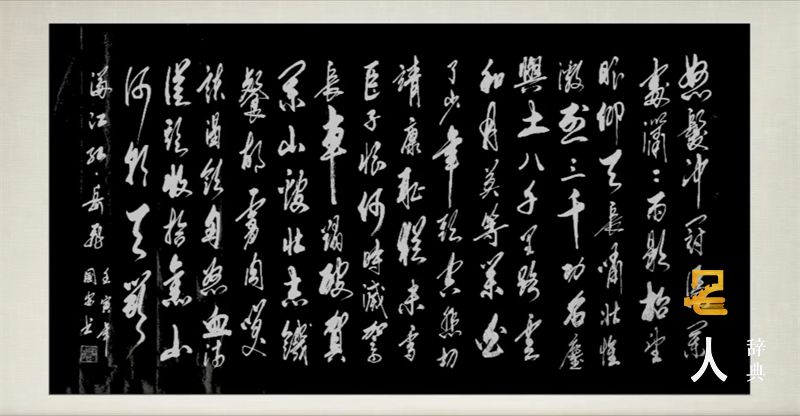 怒髮冲冠闌
處潇潇雨歇抬望
眼仰天長嘯壯懷
激烈三千功名塵
與土八千里路雲
和月莫等閑白
了少年頭空悲切
靖康恥猶未雪
臣子恨何時滅駕
長車踏破賀
蘭山闕壯志饑
餐胡虜肉笑
談渴飲匈奴血待
從頭收拾舊山
河朝天闕
满江红·岳飛
壬寅年
國安书
名人
辞典